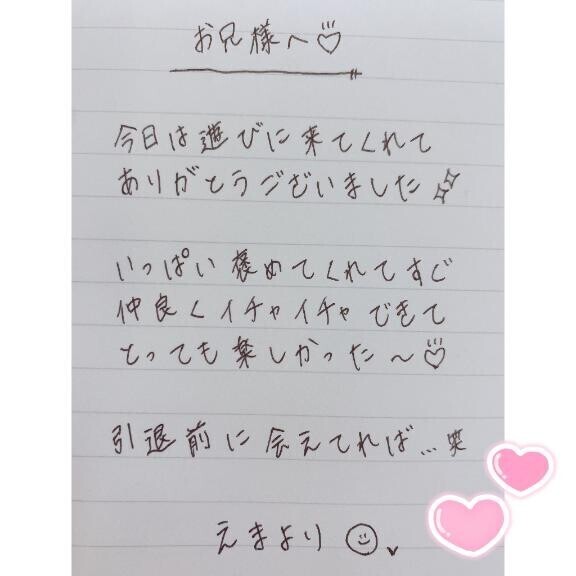 お兄様へ♡
今日は遊びに来てくれて
ありがとうございました
いっぱい褒めてくれてすご
仲良くイチャイチャできて
とっても楽しかった〜♡
引退前に会えてれば...笑
えまより